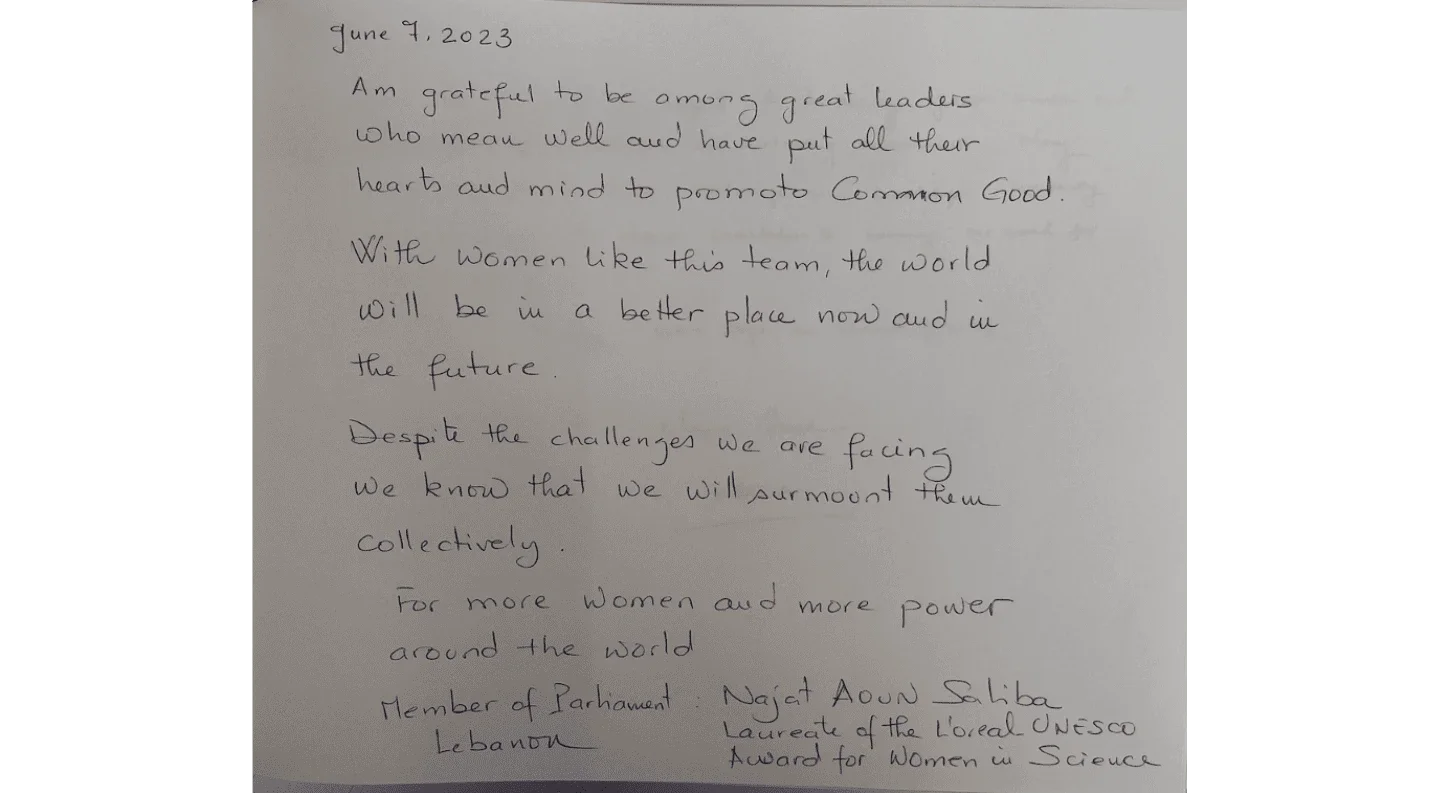 June 7, 2023
Am grateful to be among great leaders
who mean well and have put all their
hearts and mind to promoto Common Good.
With women like this team, the world
will be in a better place now and in
the future.
Despite the challenges we are facing
we know that we will surmount them
collectively.
For more women and more power
around the world
Member of Parliament : Najat AOUN Saliba
Lebanon
Laureate of the L'oreal UNESCO
Award for Women in Science